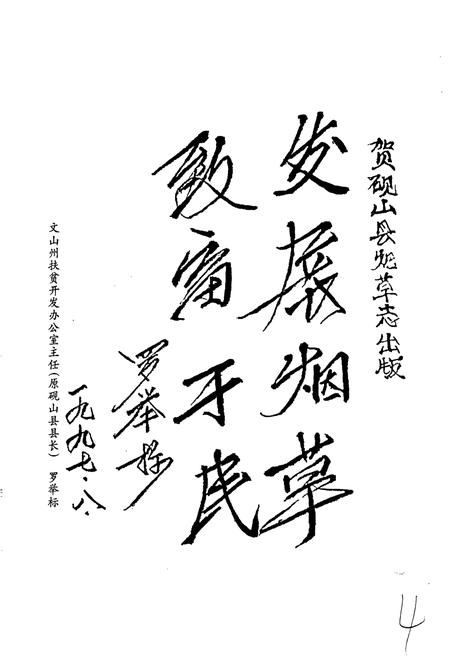 贺砚山县烟草志出版
发展烟草
致富于民
罗举标
一九九七·八·
文山州扶贫开发办公室主任(原砚山县县长) 罗举标
4